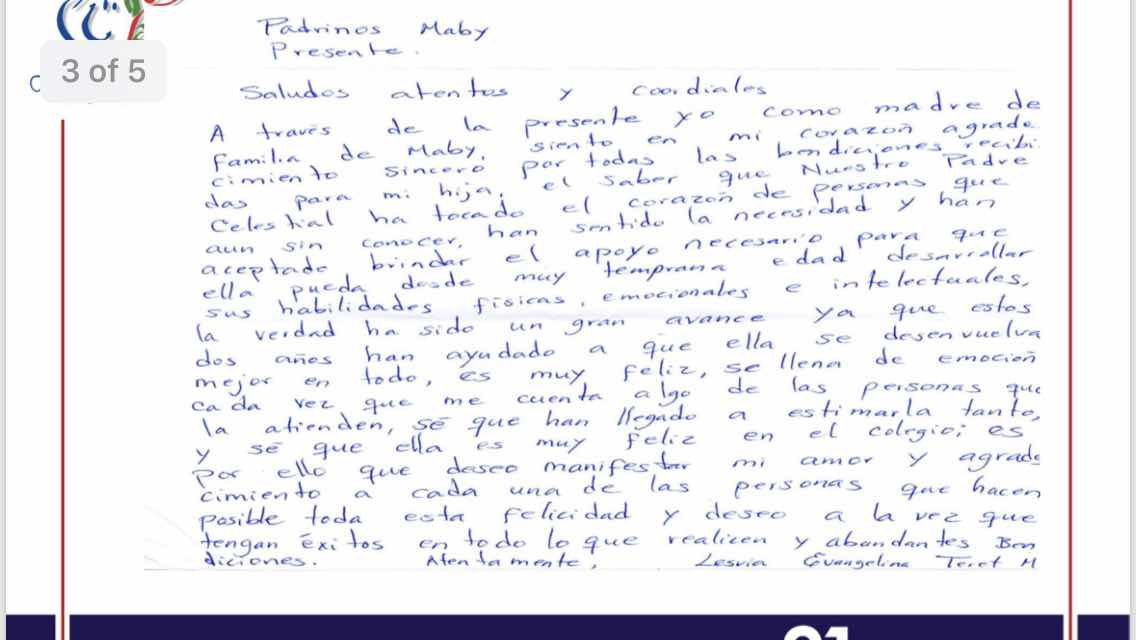 Padrinos Maby
Presente.
3 of 5
Saludos atentos y cordiales
A través de la presente yo como madre de
familia de Maby, siento en mi corazón agrade
cimiento sincero por todas las bendiciones recibi
das para mi hija, el saber que Nuestro Padre
Celestial ha tocado el corazón de personas que
aun sin conocer, han sentido la necesidad y han
aceptado brindar el apoyo necesario para que
ella pueda desde muy temprana edad desarrollar
sus habilidades físicas, emocionales e intelectuales,
la verdad ha sido un gran avance ya que estos
dos años han ayudado a que ella se desenvuelva
mejor en todo, es muy feliz, se llena de emoción
cada vez que me cuenta algo de las personas que
la atienden, sé que han llegado a estimarla tanto,
y sé que ella es muy feliz en el colegio; es
por ello que deseo manifestar mi amor y agrade
cimiento a cada una de las personas que hacen
posible toda esta felicidad y deseo a la vez que
tengan éxitos en todo lo que realicen y abundantes Ben
diciones. Atentamente, Lesvia Evangelina Teret M